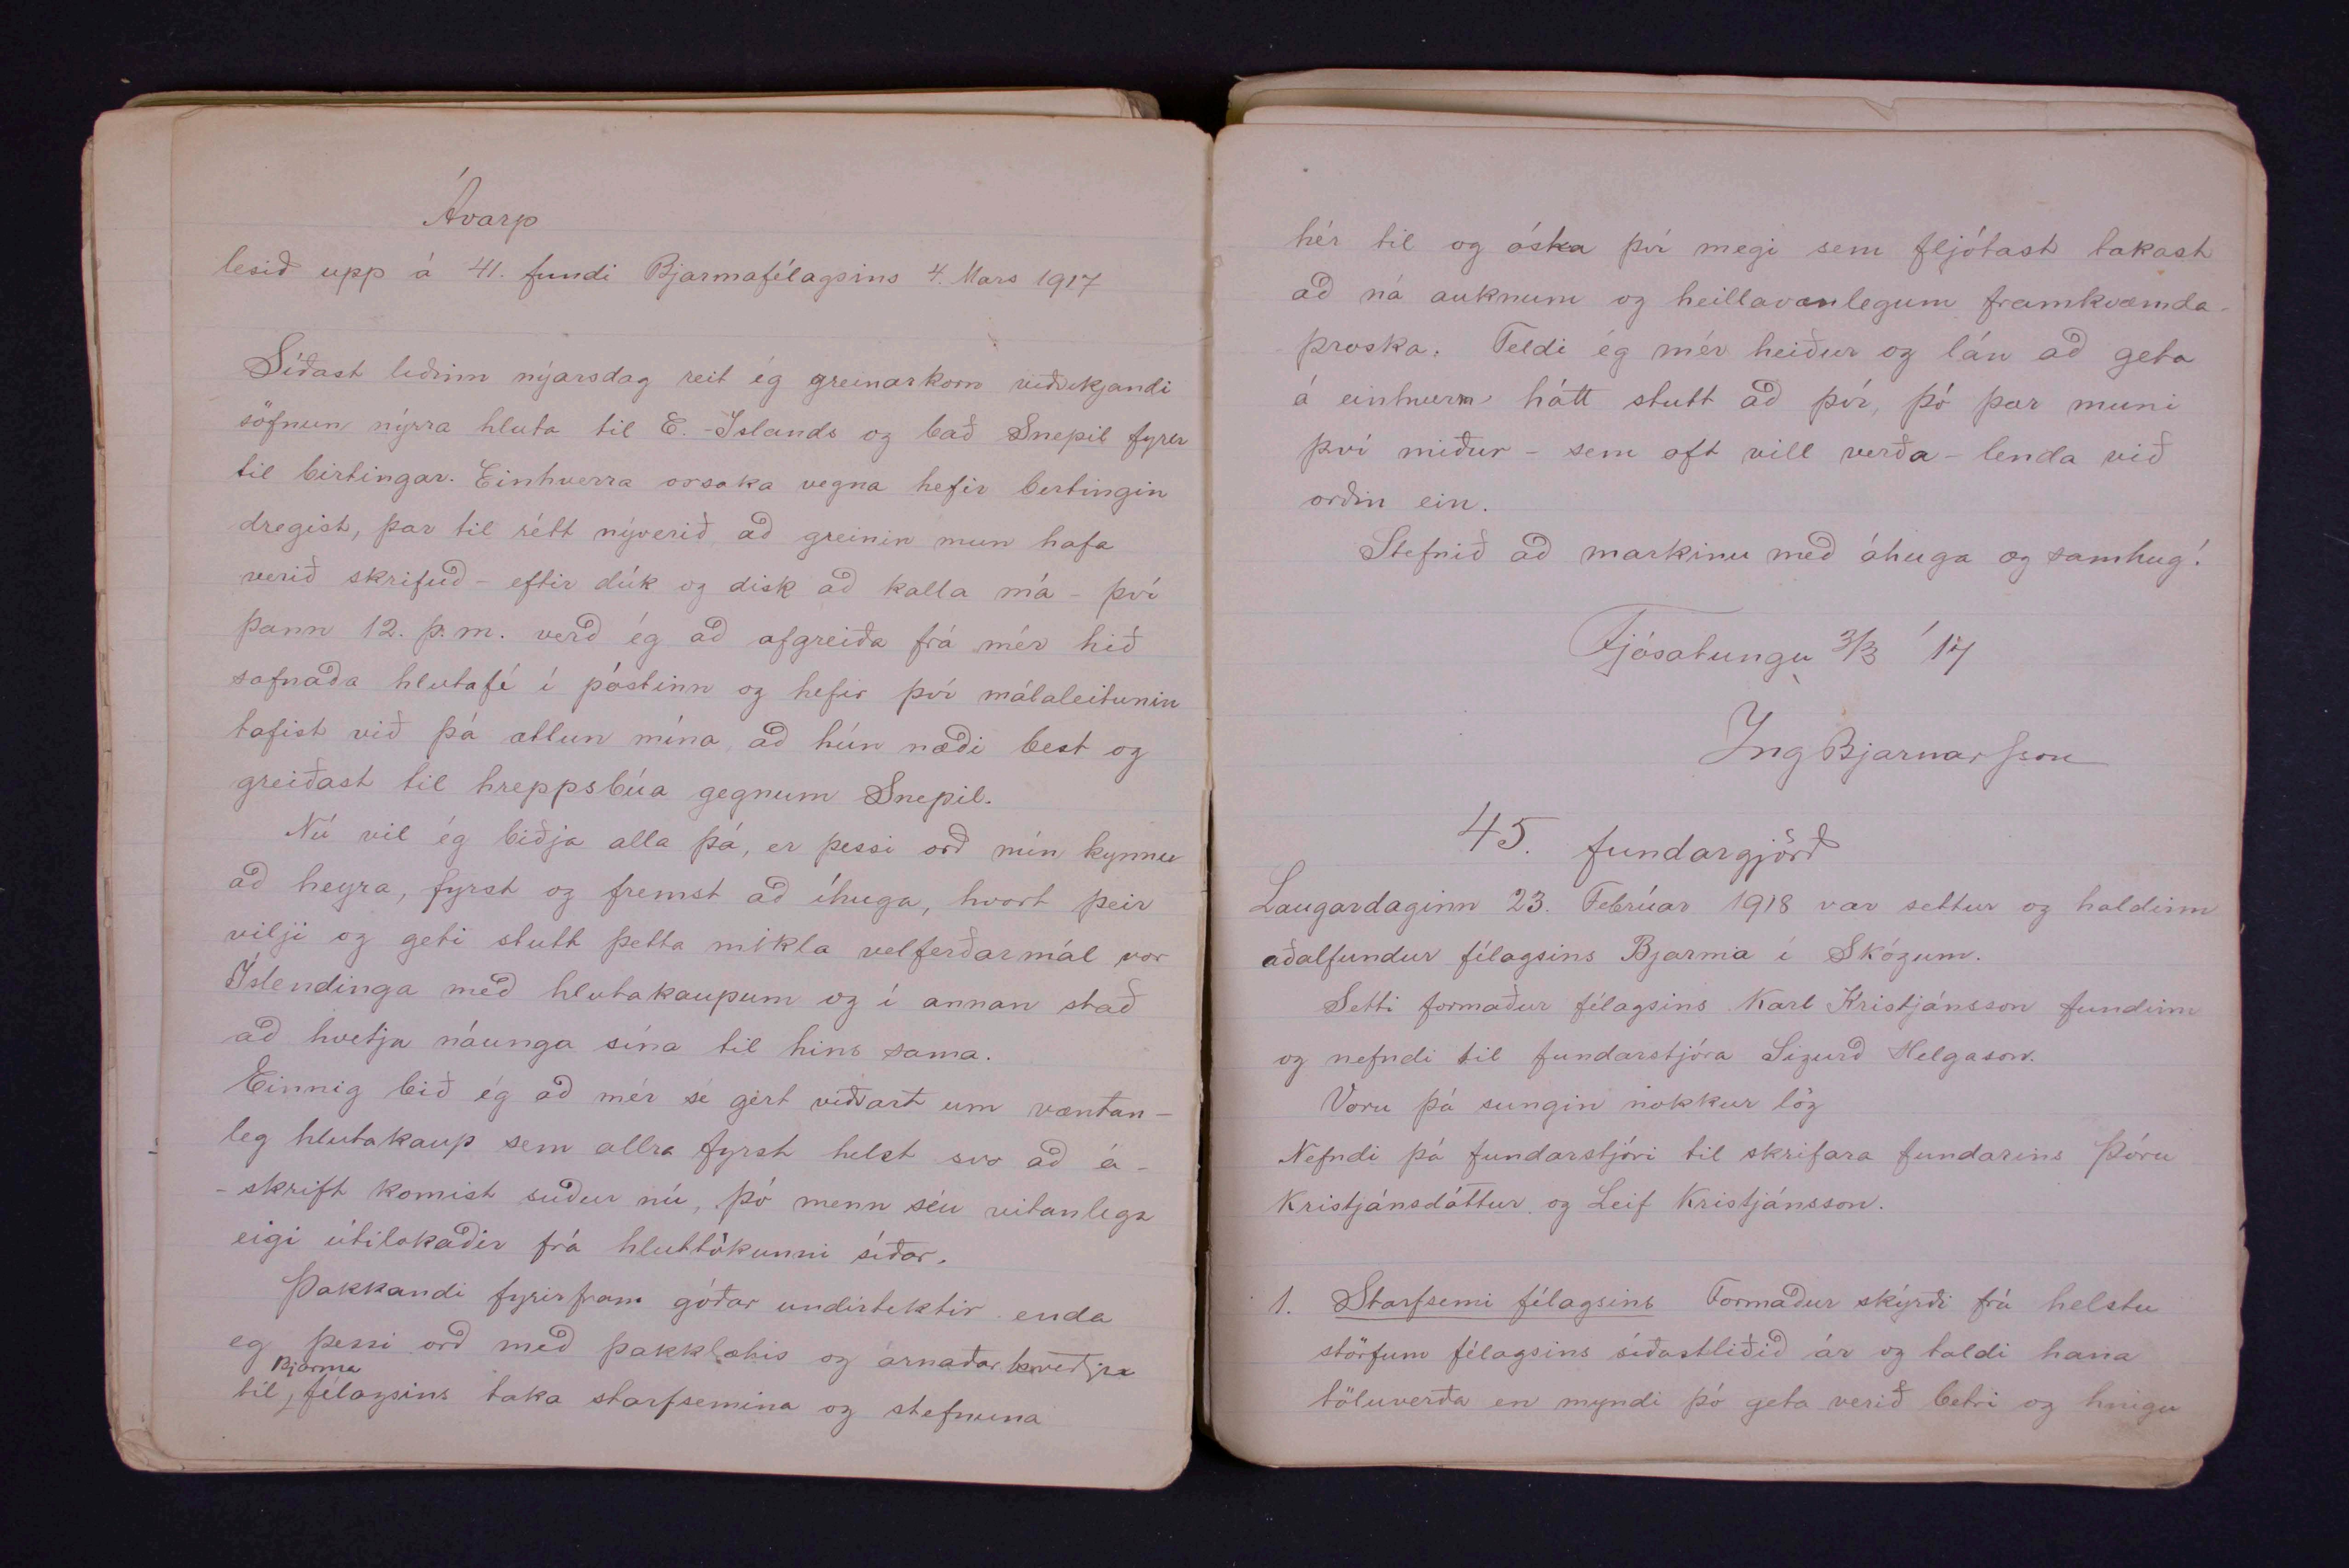 Ávarp
lesið upp á 41. fundi Bjarmafélagsins 4. Mars 1917
Síðast liðinn nýarsdag reit ég greinarkorn viðvikjandi
söfnun nýrra hluta til E.-Islands og bað Snepil fyrir
til birtingar. Einhverra orsaka vegna hefir birtingin
dregist, þar til rétt nýverið að greinin mun hafa
verið skrifuð - eftir dúk og disk að kalla má - því
þann 12. þ.m. verð ég að afgreiða frá mér hið
safnaða hlutafé í póstinn og hefir því málaleitunin
tafist við þá ætlun mína, að hún næði best og
greiðast til hreppsbúa gegnum Snepil.
Nú vil ég biðja alla þá, er þessi orð mín kynnu
að heyra, fyrst og fremst að íhuga, hvort þeir
vilji og geti stutt þetta mikla velferðarmál vor
Íslendinga með hlutakaupum og í annan stað
að hvetja náunga sína til hins sama.
Einnig bið ég að mér sé gert viðvart um væntan-
leg hlutakaup sem allra fyrst helst svo að á-
-skrift komist suður nú, þó menn séu vitanlega
eigi útilokaðir frá hluttökunni síðar.
Þakkandi fyrirfram góðar undirtektir enda
eg þessi orð með þakklætis og árnaðar kveðju
til Bjarma félagsins taka starfsemina og stefnuna
hér til og óska því megi sem fljótast takast
að ná auknum og heillavænlegum framkvæmda-
þroska. Teldi ég mér heiður og lán að geta
á einhvern hátt stutt að því, þó þar muni
því miður - sem oft vill verða - lenda við
orðin ein.
Stefnið að markinu með áhuga og samhug!
Fjósatungu 3/3 '17
Ing Bjarnarsson
45. fundargjörð
Laugardaginn 23. Febrúar 1918 var settur og haldinn
aðalfundur félagsins Bjarma í Skógum.
Setti formaður félagsins Karl Kristjánsson fundinn
og nefndi til fundarstjóra Sigurð Helgason.
Voru þá sungin nokkur lög
Nefndi þá fundarstjóri til skrifara fundarins Þóru
Kristjánsdóttur og Leif Kristjánsson.
1. Starfsemi félagsins Formaður skýrði frá helstu
störfum félagsins síðastliðið ár og taldi hana
töluverða en myndi þó geta verið betri og hnigu